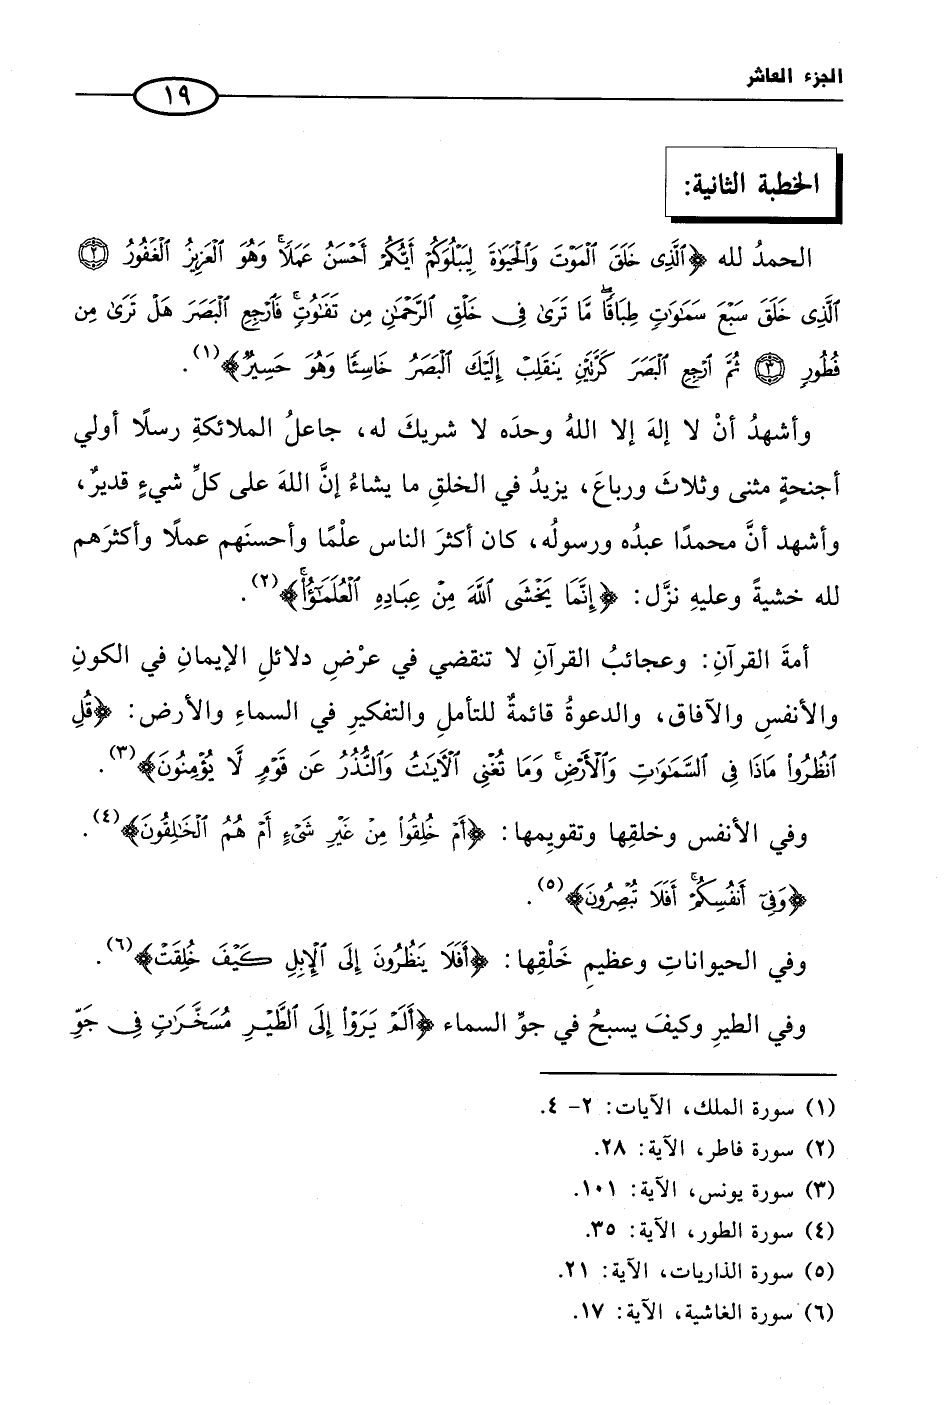 الجزء العاشر
١٩
الخطبة الثانية:
الحمدُ لله ﴿ٱلَّذِى خَلَقَ ٱلْمَوْتَ وَٱلْحَيَوٰةَ لِيَبْلُوَكُمْ أَيُّكُمْ أَحْسَنُ عَمَلًا ۚ وَهُوَ ٱلْعَزِيزُ ٱلْغَفُورُ ۝٢
ٱلَّذِى خَلَقَ سَبْعَ سَمَٰوَٰتٍ طِبَاقًا ۖ مَّا تَرَىٰ فِى خَلْقِ ٱلرَّحْمَٰنِ مِن تَفَٰوُتٍ ۖ فَٱرْجِعِ ٱلْبَصَرَ هَلْ تَرَىٰ مِن
فُطُورٍ ۝٣ ثُمَّ ٱرْجِعِ ٱلْبَصَرَ كَرَّتَيْنِ يَنقَلِبْ إِلَيْكَ ٱلْبَصَرُ خَاسِئًا وَهُوَ حَسِيرٌ﴾(١).
وأشهدُ أنْ لا إلهَ إلا اللهُ وحدَه لا شريكَ له، جاعلُ الملائكةِ رسلًا أولي
أجنحةٍ مثنى وثلاثَ ورباعَ، يزيدُ في الخلقِ ما يشاءُ إنَّ اللهَ على كلِّ شيءٍ قديرٌ،
وأشهد أنَّ محمدًا عبدُه ورسولُه، كان أكثرَ الناس علْمًا وأحسنَهم عملًا وأكثرَهم
لله خشيةً وعليهِ نزَّل: ﴿إِنَّمَا يَخْشَى ٱللَّهَ مِنْ عِبَادِهِ ٱلْعُلَمَٰٓؤُا۟ ۗ﴾(٢).
أمةَ القرآنِ: وعجائبُ القرآنِ لا تنقضي في عرْضِ دلائلِ الإيمانِ في الكونِ
والأنفسِ والآفاق، والدعوةُ قائمةٌ للتأملِ والتفكيرِ في السماءِ والأرض: ﴿قُلِ
ٱنظُرُوا۟ مَاذَا فِى ٱلسَّمَٰوَٰتِ وَٱلْأَرْضِ ۚ وَمَا تُغْنِى ٱلْءَايَٰتُ وَٱلنُّذُرُ عَن قَوْمٍ لَّا يُؤْمِنُونَ﴾(٣).
وفي الأنفس وخلقِها وتقويمِها: ﴿أَمْ خُلِقُوا۟ مِنْ غَيْرِ شَىْءٍ أَمْ هُمُ ٱلْخَٰلِقُونَ﴾(٤).
﴿وَفِىٓ أَنفُسِكُمْ ۚ أَفَلَا تُبْصِرُونَ﴾(٥).
وفي الحيواناتِ وعظيمِ خَلْقِها: ﴿أَفَلَا يَنظُرُونَ إِلَى ٱلْإِبِلِ كَيْفَ خُلِقَتْ﴾(٦).
وفي الطيرِ وكيفَ يسبحُ في جوِّ السماء ﴿أَلَمْ يَرَوْا۟ إِلَى ٱلطَّيْرِ مُسَخَّرَٰتٍ فِى جَوِّ
(١) سورة الملك، الآيات: ٢- ٤.
(٢) سورة فاطر، الآية: ٢٨.
(٣) سورة يونس، الآية: ١٠١.
(٤) سورة الطور، الآية: ٣٥.
(٥) سورة الذاريات، الآية: ٢١.
(٦) سورة الغاشية، الآية: ١٧.